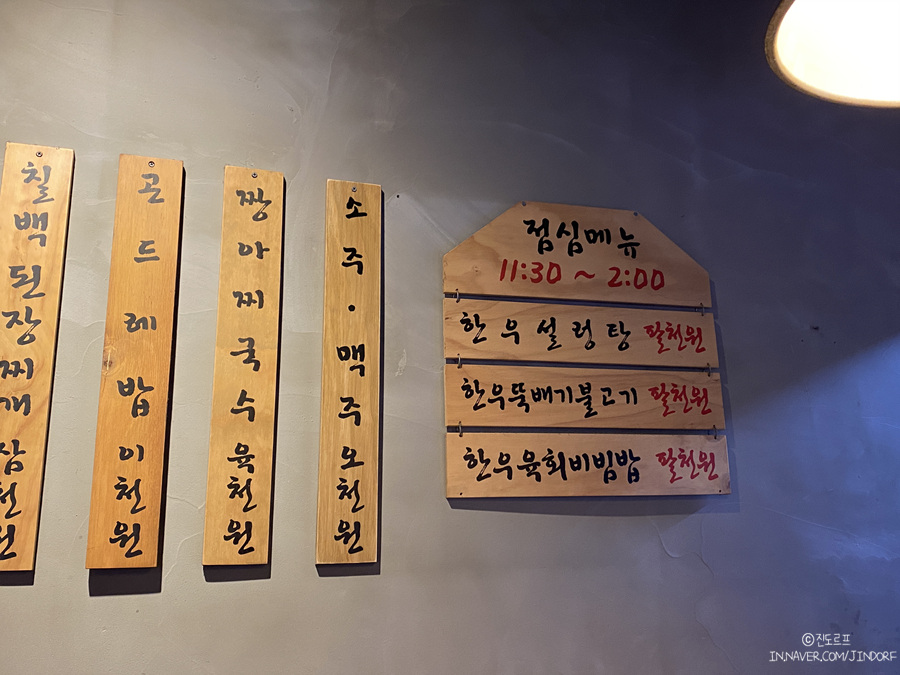 칠백된장찌개삼천원
곤드레밥이천원
짱아찌국수육천원
소주·맥주오천원
점심메뉴
11:30 ~ 2:00
한우설렁탕 팔천원
한우뚝배기불고기 팔천원
한우육회비빔밥 팔천원
©진도르프
IN.NAVER.COM/JINDORF